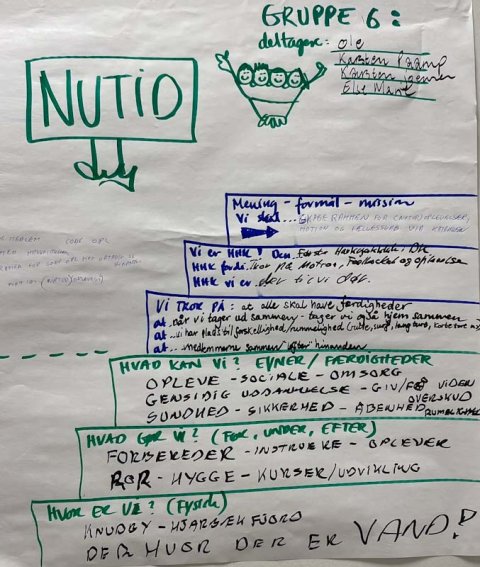 GRUPPE 6:
deltagere: Ole
Karsten
Karsten
Else
NUTID
Mening - formål - mission
Vi skal... SKABE RAMMEN FOR (NATUR)OPLEVELSER,
MOTION OG FÆLLESSKAB VIA KAJAKKEN
Vi er HHK? Den
HHK fordi: Tror på Motion, Fællesskab og oplevelse
HHK vi er der til vi dør.
VI TROR PÅ: at alle skal have færdigheder
at når vi tager ud sammen - tager vi også hjem sammen
at vi har plads til forskellighed/rummelighed
at ...medlemmerne sammen "løfter" hinanden
HVAD KAN VI? EVNER/FÆRDIGHEDER
OPLEVE - SOCIALE - OMSORG
GENSIDIG UDDANNELSE - GIV/FÅ VIDEN
OVERSKUD
SUNDHED - SIKKERHED - ÅBENHED
HVAD GØR VI? (FØR, UNDER, EFTER)
FORBEREDER - INSTRUERE - OPLEVER
ROR - HYGGE - KURSER/UDVIKLING
HVOR ER VI? (Fysisk)
KNUDBY - HJARBÆK FJORD
DER HVOR DER ER VAND!